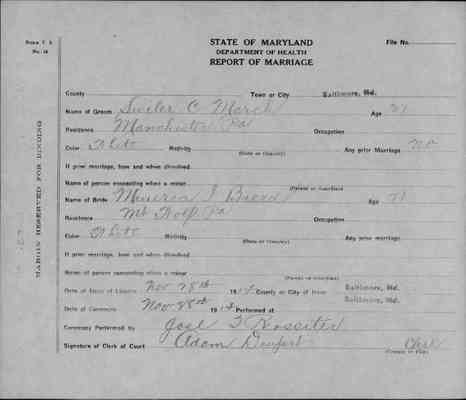 FORM V. S.
No. 18
STATE OF MARYLAND
DEPARTMENT OF HEALTH
REPORT OF MARRIAGE
File No.
MARGIN RESERVED FOR BINDING
County Town or City Baltimore, Md.
Name of Groom C. March Age 21
Residence Manchester Pa Occupation
Color White Nativity (State or Country) Any prior Marriage no
If prior marriage, how and when dissolved
Name of person consenting when a minor (Parent or Guardian)
Name of Bride Minerva I Age 21
Residence Mt Wolf Pa Occupation
Color White Nativity (State or Country) Any prior marriage
If prior marriage, how and when dissolved
Name of person consenting when a minor (Parent or Guardian)
Date of Issue of License Nov 28th 1914 County or City of Issue Baltimore, Md.
Date of Ceremony Nov 28th 1914 Performed at Baltimore, Md.
Ceremony Performed by Jose T Rossiter
Signature of Clerk of Court Adam Deupert Clerk